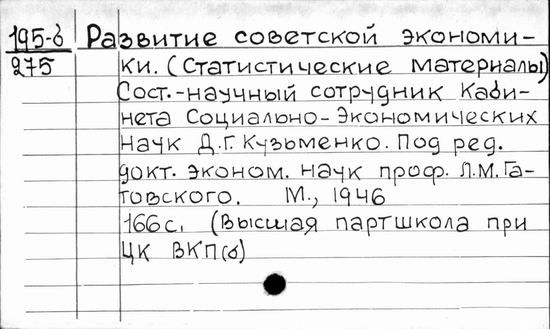 195-б Развитие советской экономи-
275 ки. (Статистические материалы)
Сост.-научный сотрудник Каби-
нета Социально-Экономических
Наук Д.Г. Кузьменко. Под ред.
докт. эконом. наук проф. Л.М. Га-
товского. М., 1946
166 с. (Высшая партшкола при
ЦК ВКП(б)